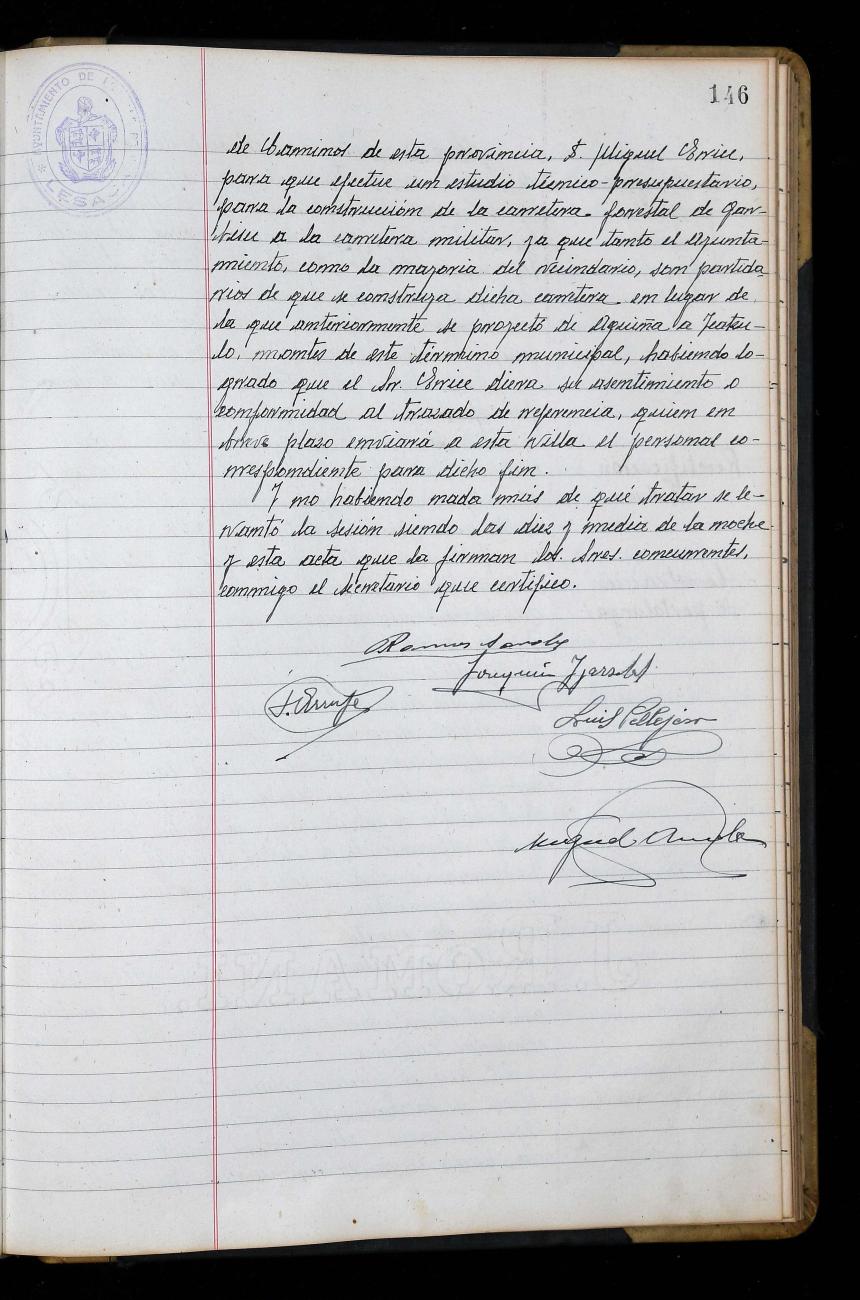 146
AYUNTAMIENTO DE
LESACA
de Caminos de esta provincia, D. Miguel Erice,
para que efectue un estudio técnico-presupuestario,
para la construcción de la carretera forestal de
a la carretera militar, ya que tanto el Ayunta-
miento, como la mayoria del vecindario, son partida-
rios de que se construya dicha carretera en lugar de
la que anteriormente se proyectó de Aguiña a
montes de este término municipal, habiendo lo-
grado que el Sr. Erice diera su asentimiento o
conformidad al trazado de referencia, quien en
breve plazo enviará a esta villa el personal co-
rrespondiente para dicho fin.
Y no habiendo nada más de qué tratar se le-
vantó la sesión siendo las diez y media de la noche
y esta acta que la firman los Sres. concurrentes,
conmigo el secretario que certifico.
Joaquín
Luis Pellejero
Miguel